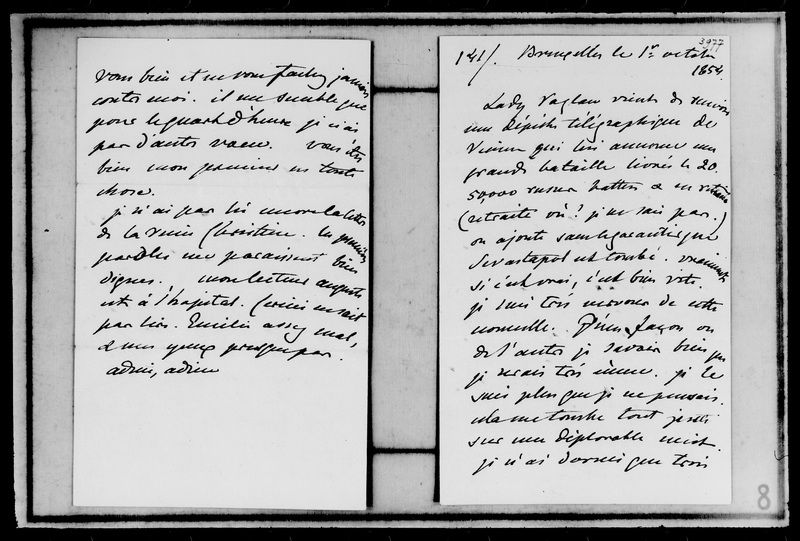 vous bien et ne vous fachez jamais
contre moi. il me semble que
pour le quart d'heure je n'ai
pas d'autres vœux. vous êtes
bien mon premier en toute
chose.
je n'ai pas lu encore la lettre
de la reine Christine. les premières
paroles me paraissent bien
dignes. mon lecteur auguste
est à l'hopital. (Ceci ne sait
pas lire. Emilie assez mal,
& mes yeux presque pas.
adieu, adieu
3977
141/. Bruxelles le 1er octobre
1854.
Lady Raglan vient de recevoir
une dépêche télégraphique de
Vienne qui lui annonce une
grande bataille livrée le 20.
50,000 russes battus & en retraite
(retraite où? je ne sais pas.)
on ajoute sans le garantir que
Sevastopol est tombé. vraiment
si c'est vrai, c'est bien vite.
je suis très nerveuse de cette
nouvelle. D'une façon ou
de l'autre je savais bien que
je serais très émue. je le
suis plus que je ne pensais.
cela me touche tout
sur une déplorable nuit.
je n'ai dormi que trois
8